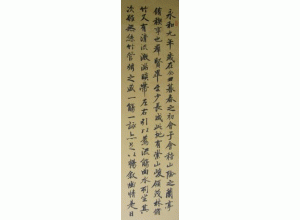 永和九年歲在癸丑暮春之初會于會稽山陰之蘭亭
脩禊事也羣賢畢至少長咸集此地有崇山峻領茂林脩
竹又有清流激湍暎帶左右引以為流觴曲水列坐其
次雖無絲竹管絃之盛一觴一詠亦足以暢敘幽情是日